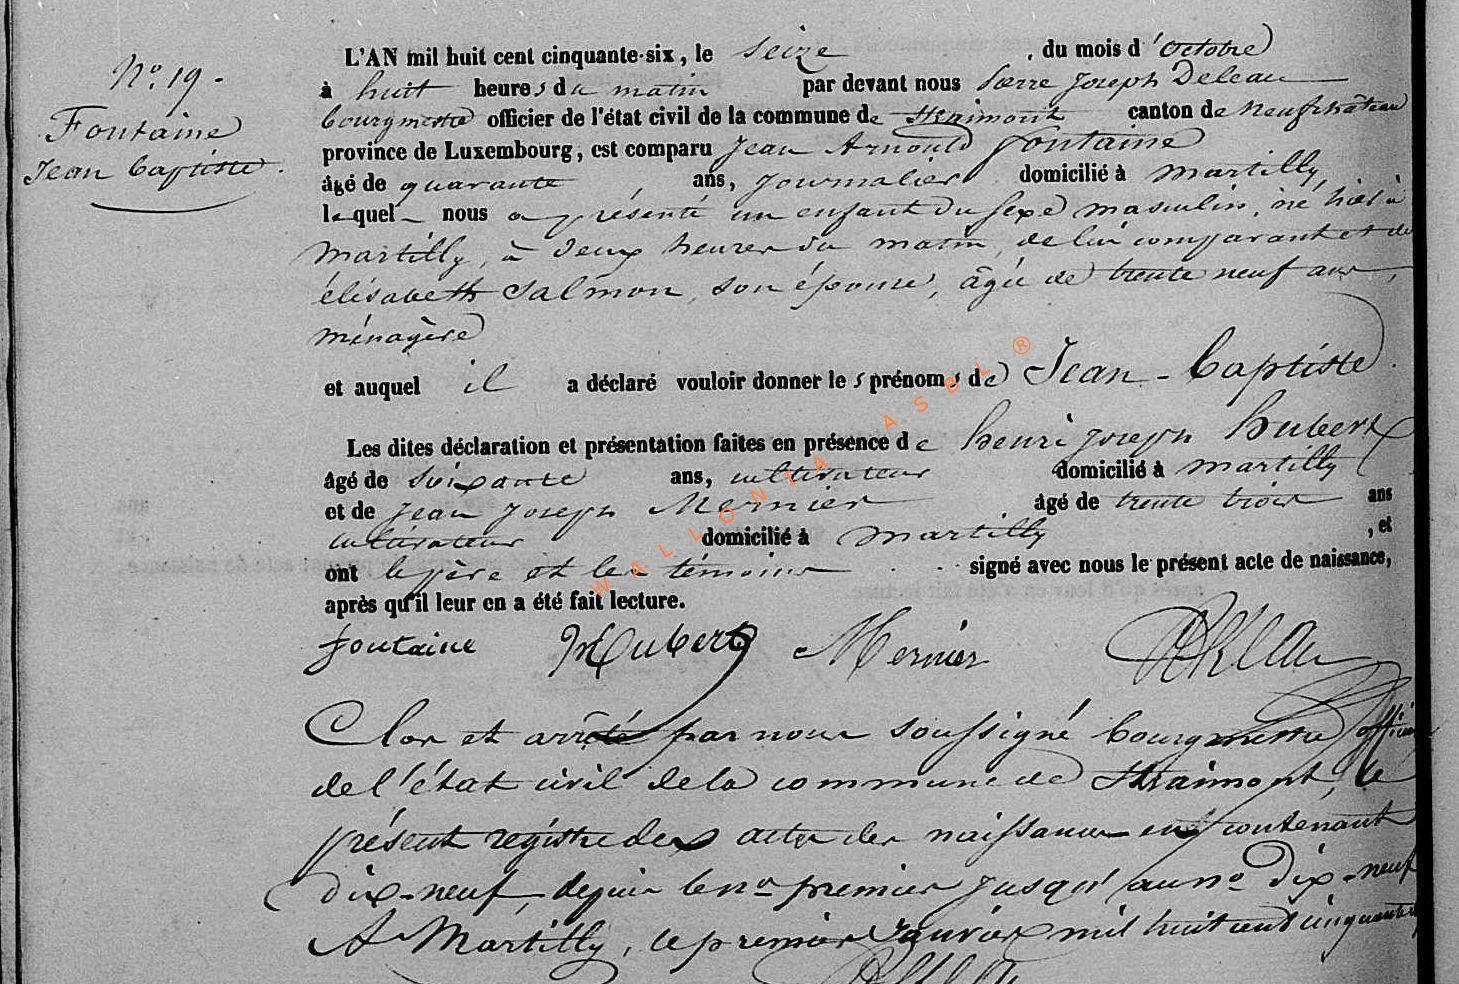 N° 19.
Fontaine
Jean Baptiste.
L'AN mil huit cent cinquante-six, le seize, du mois d'octobre
à huit heures du matin par devant nous Pierre Joseph Deleau
bourgmestre officier de l'état civil de la commune de Straimont canton de Neufchâteau
province de Luxembourg, est comparu Jean Arnould Fontaine
âgé de quarante ans, journalier domicilié à Martilly
lequel nous a présenté un enfant du sexe masculin, né hier à
Martilly, à deux heures du matin, de lui comparant et de
élisabeth Salmon, son épouse, âgée de trente neuf ans,
ménagère
et auquel il a déclaré vouloir donner les prénoms de Jean-Baptiste.
Les dites déclaration et présentation faites en présence de henri joseph hubert
âgé de soixante ans, cultivateur domicilié à Martilly
et de Jean Joseph Mernier âgé de trente trois ans
cultivateur domicilié à Martilly, et
ont le père et les témoins signé avec nous le présent acte de naissance,
après qu'il leur en a été fait lecture.
fontaine Hubert Mernier
Clos et arrêté par nous soussigné bourgmestre officier
de l'état civil de la commune de Straimont, le
présent registre des actes des naissances en contenant
dix-neuf, depuis le n° premier jusqu'au n° Dix-neuf
A Martilly, le premier Janvier mil huit cent cinquante
WALLONIA ASBL ®